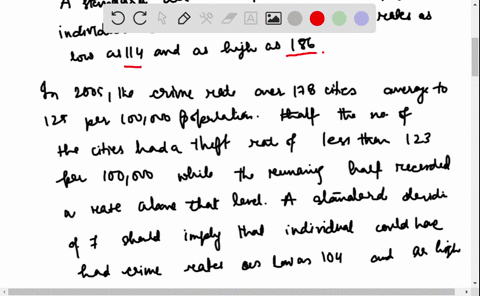 individual rates as
low as 114 and as high as 186.
In 2005, the crime rate over 178 cities average to
125 per 100,000 population. Half the no of
the cities had a theft rate of less than 123
per 100,000 while the remaining half recorded
a rate above that level. A standard deviati
of 7 should imply that individual could have
had crime rates as low as 104 and as high